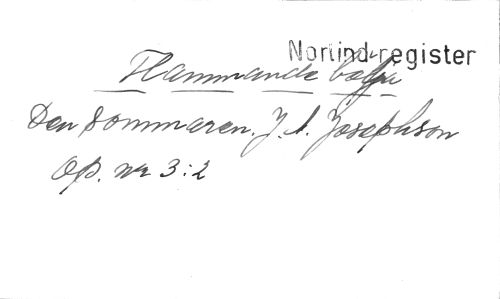 Norlind-register
Flammande bölja
Den sommaren. J. A. Josephson
Op. nr 3:2